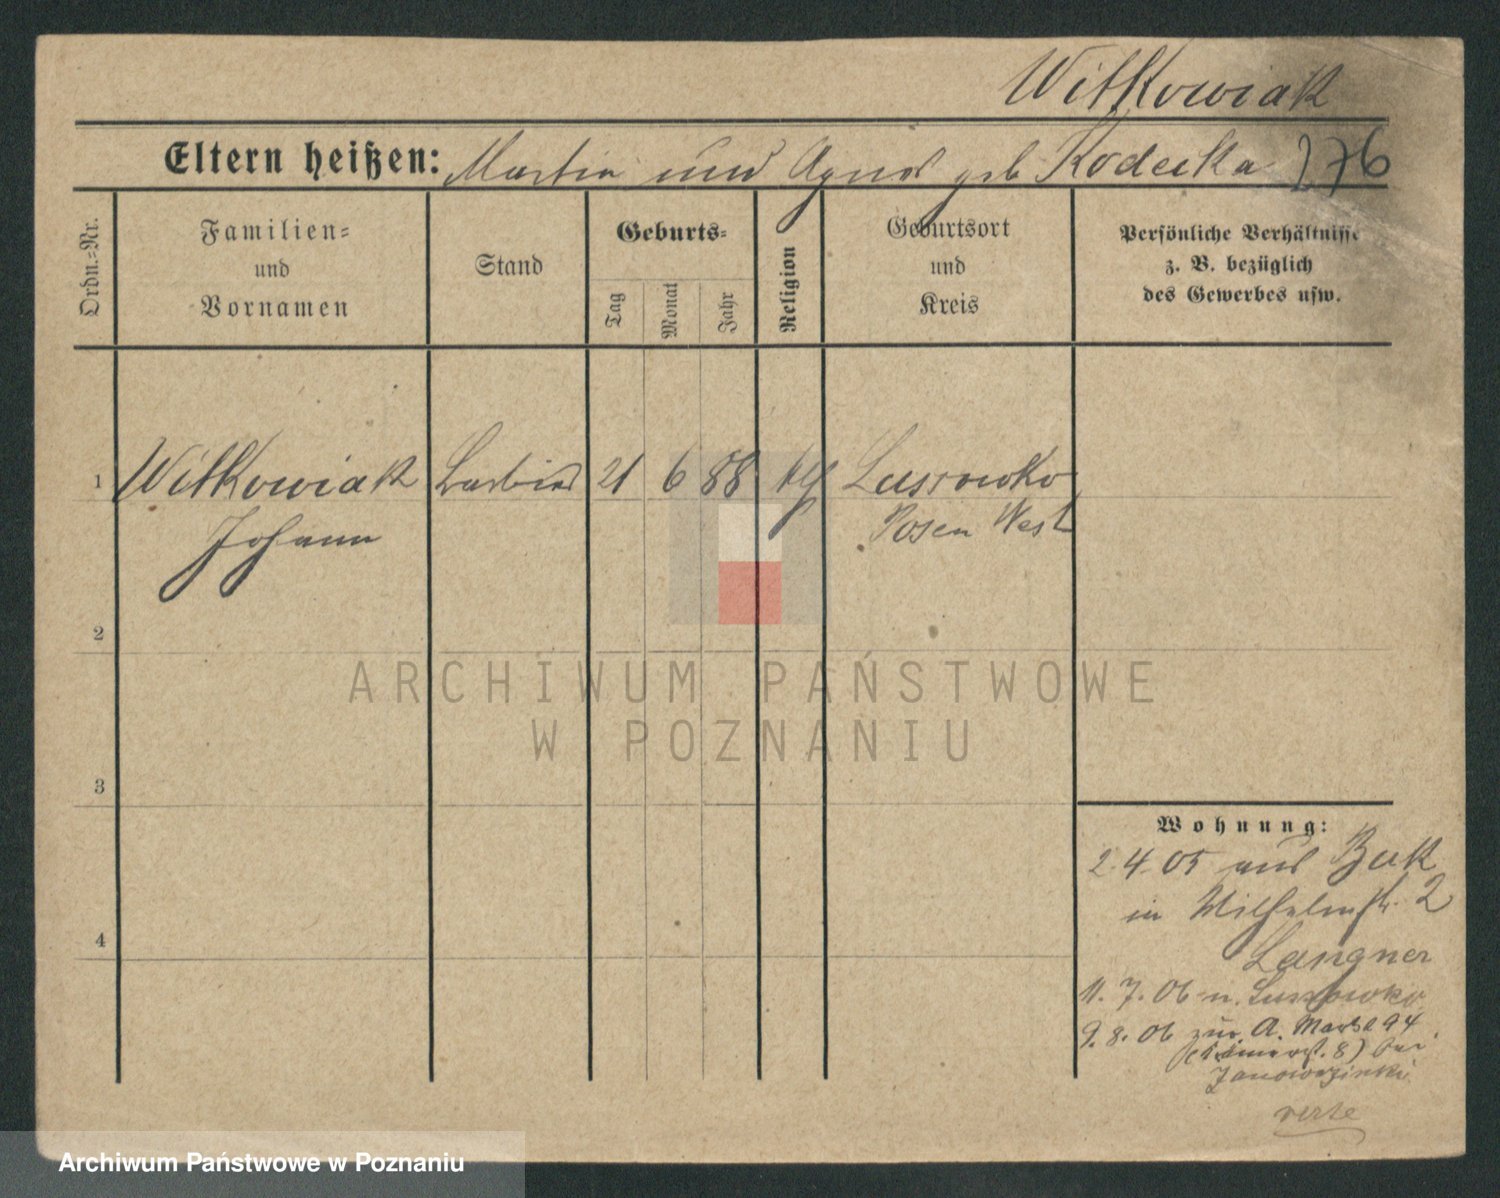 Witkowiak
Eltern heißen: Martin und Agnes geb Kodecka 276
Ordn.-Nr.
Familien-
und
Vornamen
Stand
Geburts-
Tag
Monat
Jahr
Religion
Geburtsort
und
Kreis
Persönliche Verhältnisse
z. B. bezüglich
des Gewerbes usw.
1 Witkowiak Barbier 21 6 88 klg Lussowko
Johann Posen West
2
3
4
Wohnung:
2.4.05 aus Buk
in Wilhelmstr. 2
Langner
11.7.06 n. Lussowko
9.8.06 zur. A. Markt 94
8) bei
verte
ARCHIWUM PAŃSTWOWE
W POZNANIU
Archiwum Państwowe w Poznaniu